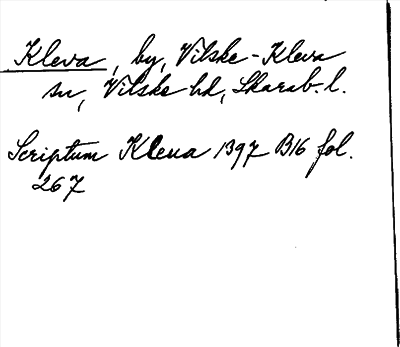 Kleva, by, Vilske-Kleva
sn, Vilske hd, Skarab. l.
Scriptum Kleua 1397 B16 fol.
267